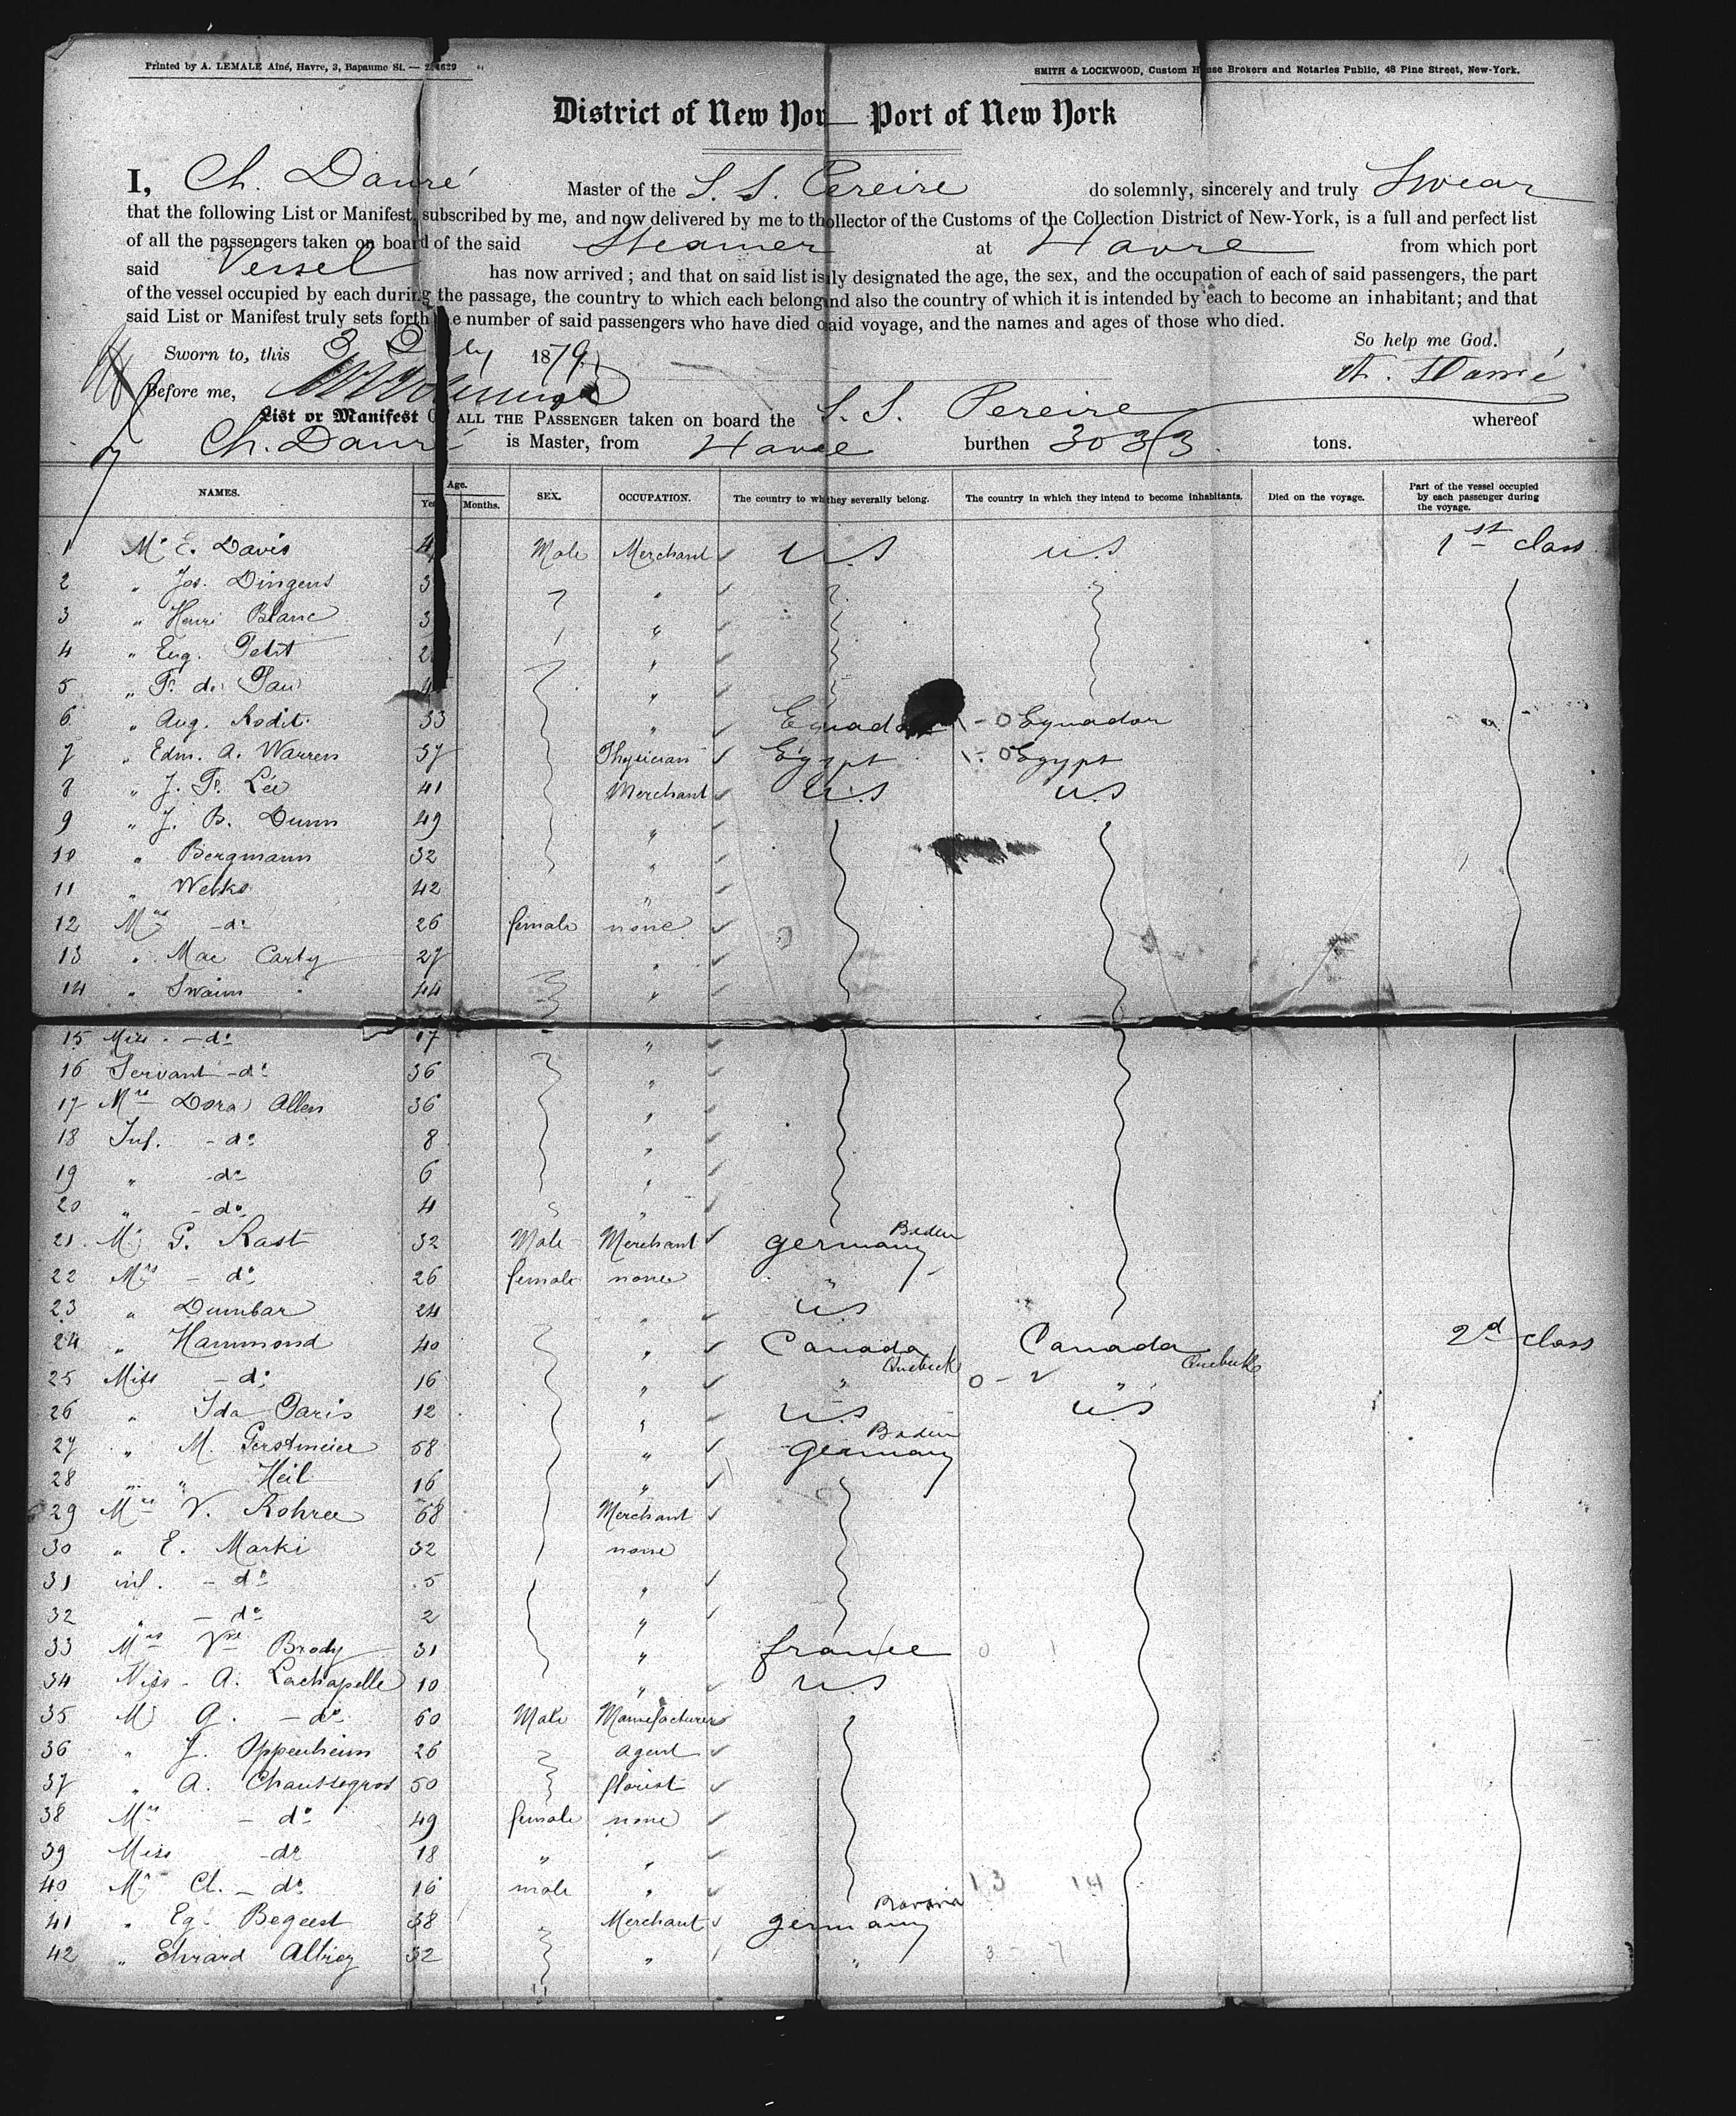 Printed by A. LEMALE Aîné, Havre, 3, Bapaume St. —
SMITH & LOCKWOOD, Custom House Brokers and Notaries Public, 48 Pine Street, New-York.
District of New Yor— Port of New York
I, Ch. Dauré Master of the S. S. Pereire do solemnly, sincerely and truly Swear
that the following List or Manifest, subscribed by me, and now delivered by me to th ollector of the Customs of the Collection District of New-York, is a full and perfect list
of all the passengers taken on board of the said Steamer at Havre from which port
said Vessel has now arrived ; and that on said list is ly designated the age, the sex, and the occupation of each of said passengers, the part
of the vessel occupied by each during the passage, the country to which each belong nd also the country of which it is intended by each to become an inhabitant; and that
said List or Manifest truly sets forth e number of said passengers who have died o aid voyage, and the names and ages of those who died.
So help me God.
Sworn to, this 3 ly 1879
Ch. Dauré
Before me,
List or Manifest OF ALL THE PASSENGER taken on board the S. S. Pereire whereof
Ch. Dauré is Master, from Havre burthen 3033 tons.
NAMES. Age. Years Months. SEX. OCCUPATION. The country to wh they severally belong. The country in which they intend to become inhabitants. Died on the voyage. Part of the vessel occupied by each passenger during the voyage.
1 Mr E. Davis 4 Male Merchant U.S U.S 1st class
2 " Jos. Dingens 3 "
3 " Henri Blanc 3 "
4 " Eug. Petit 2 "
5 " F. de Pau 4 "
6 " Aug. Rodit 33 " Equador Equador
7 " Edm. A. Warren 37 Physician Egypt Egypt
8 " J. F. Lee 41 Merchant U.S U.S
9 " J. B. Dunn 49 "
10 " Bergmann 32 "
11 " Werks 42 "
12 Mrs - do 26 female none
13 " Mac Carty 27 "
14 " Swaim 44 "
15 Miss - do 17 "
16 Servant - do 36 "
17 Mrs Dora Allen 36 "
18 Inf. - do 8 "
19 " - do 6 "
20 " - do 4 "
21 Mr G. Rast 32 Male Merchant Germany Baden
22 Mrs - do 26 female none "
23 " Dumbar 24 " U.S
24 " Hammond 40 " Canada Quebeck Canada Quebeck 2d class
25 Miss - do 16 " " 0 - "
26 " Ida Paris 12 " U.S U.S
27 " M. Gerstmeier 58 " Germany Baden
28 " " Heil 16 "
29 Mrs V. Rohree 68 Merchant
30 " E. Marki 32 none
31 inf. - do 5 "
32 " - do 2 "
33 Mrs Vve Brody 31 " france
34 Miss A. Lachapelle 10 " U.S
35 Mr G. - do 60 Male Manufacturer
36 " J. Oppenheim 26 agent
37 " A. Chaussegros 50 florist
38 Mrs - do 49 female none
39 Miss - do 18 " "
40 Mr Ch. - do 16 male " 13 14
41 " Eg. Begeest 38 Merchant Germany Bavaria
42 " Ehrard Albrog 32 " " 3 - 7